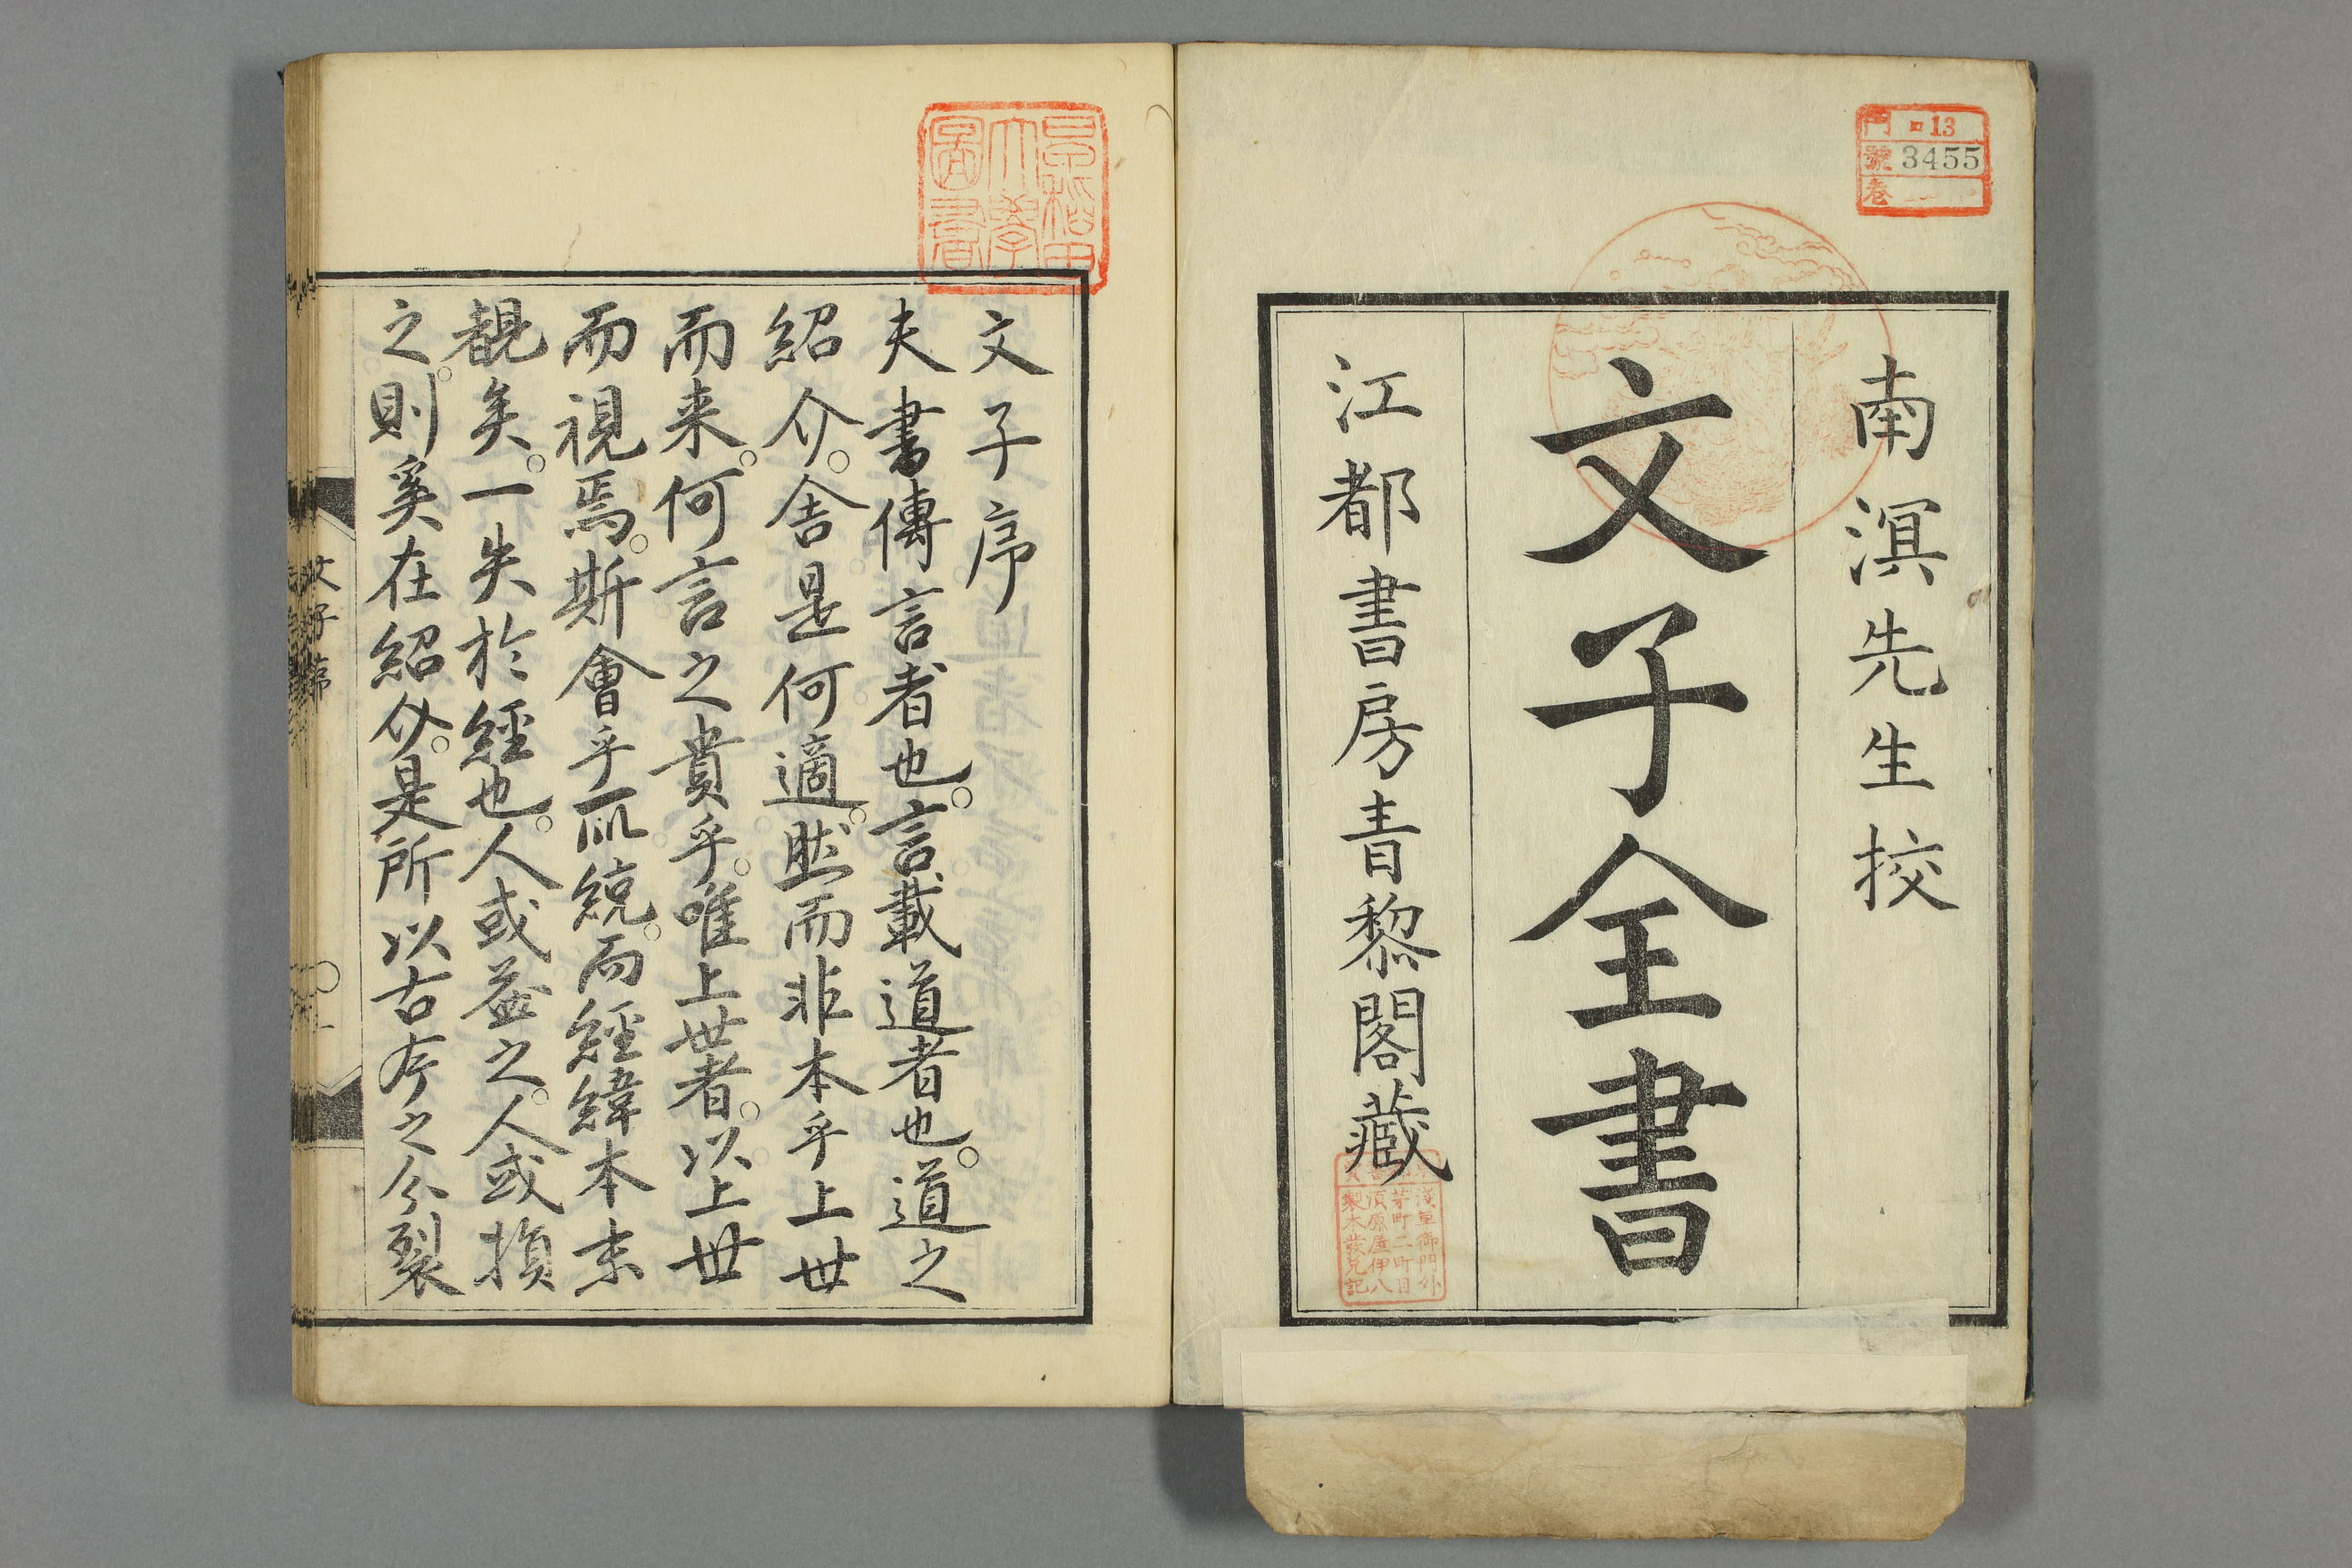 門 ロ13
號 3455
卷
南溟先生挍
文子全書
江都書房青藜閣藏
淺草御門外
茅町二町目
須原屋伊八
製本發兌記
早稲田
大學
圖書
文子序
夫書傳言者也。言載道者也。道之
紹介。舍是何適。然而非本乎上世
而来。何言之貴乎。唯上世者。以上世
而視焉。斯會乎所統。而經緯本末
覩矣。一失於經也。人或益之。人或損
之。則奚在紹介。是所以古今之分裂
文子序